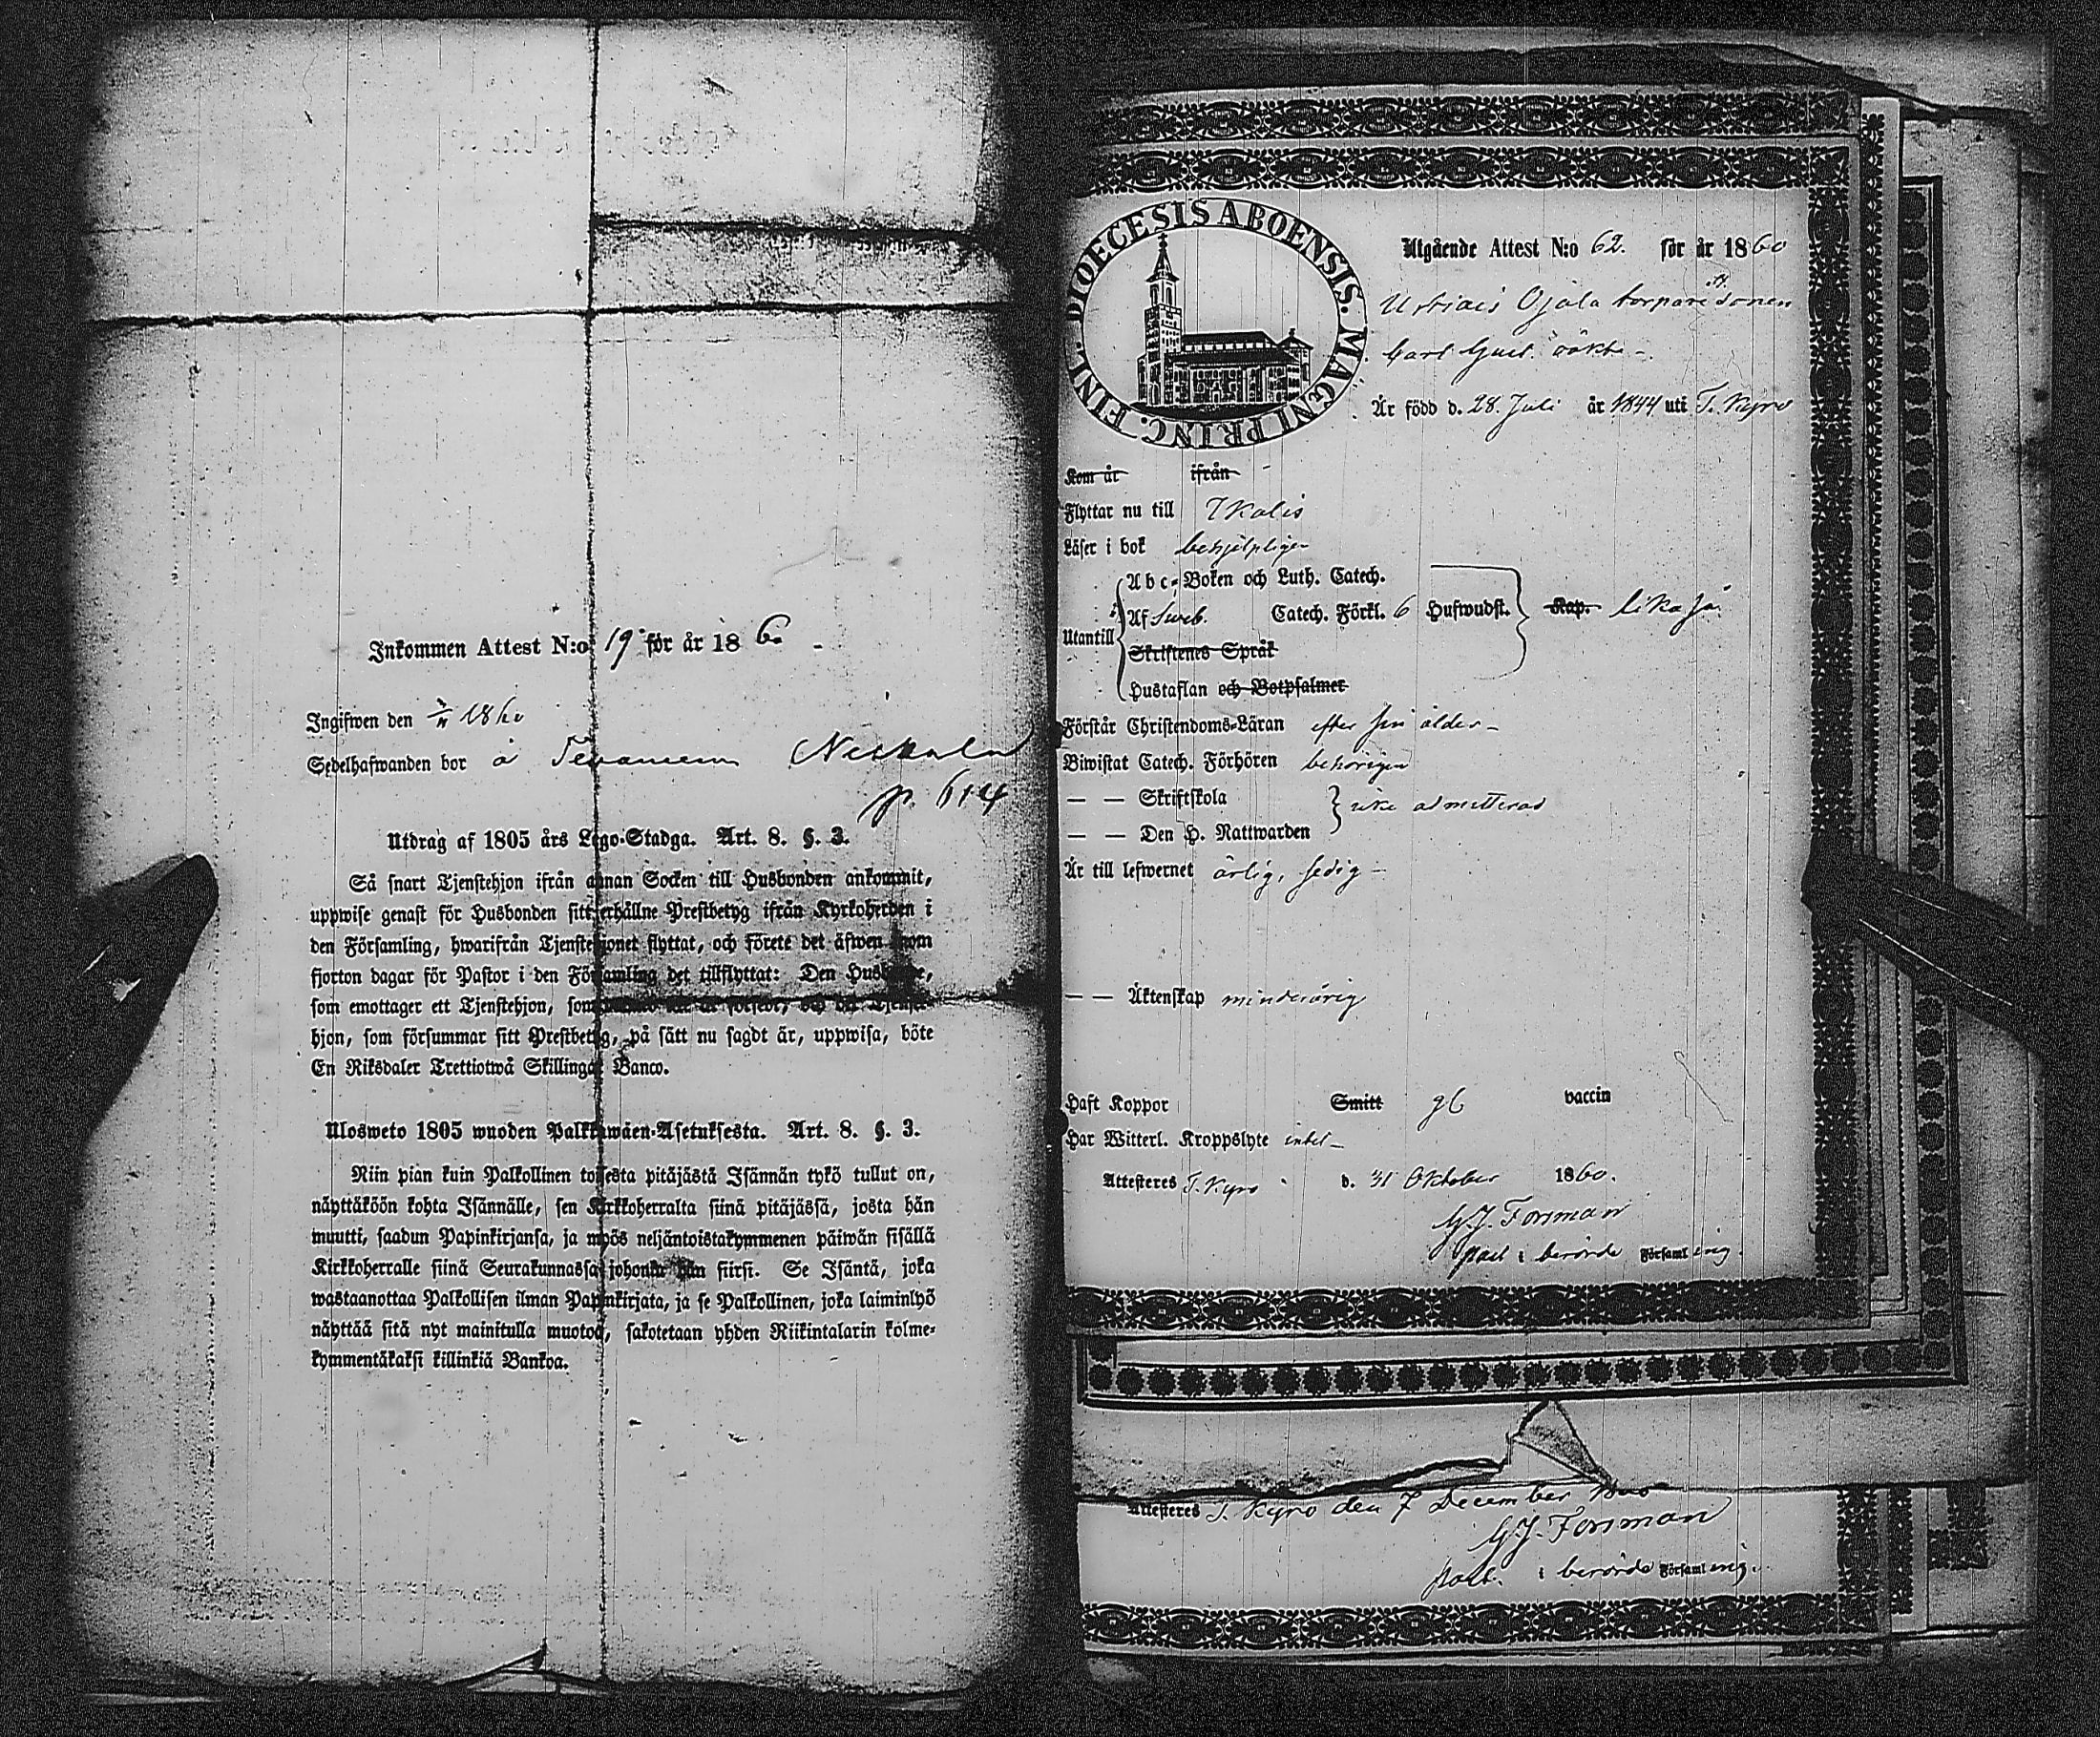 Inkommen Attest N:o 19 för år 1860
Ingifwen den 1860
Sedelhafwanden bor å
p. 614
Utdrag af 1805 års Lego-Stadga. Art. 8. §. 3.
Så snart Tjenstehjon ifrån annan Socken till Husbonden ankommit,
uppwise genast för Husbonden sitt erhållne Prestbetyg ifrån Kyrkoherden i
den Församling, hwarifrån Tjenstehjonet flyttat, och förete det äfwen inom
fjorton dagar för Pastor i den Församling det tillflyttat: Den Husbonde,
som emottager ett Tjenstehjon, som
hjon, som försummar sitt Prestbetyg, på sätt nu sagdt är, uppwisa, böte
En Riksdaler Trettiotwå Skillingar Banco.
Ulosweto 1805 wuoden Palkkawäen-Asetuksesta. Art. 8. §. 3.
Niin pian kuin Palkollinen toisesta pitäjästä Isännän tykö tullut on,
näyttäköön kohta Isännälle, sen Kirkkoherralta siinä pitäjässä, josta hän
muutti, saadun Papinkirjansa, ja myös neljäntoistakymmenen päiwän sisällä
Kirkkoherralle siinä Seurakunnassa johonka hän siirsi. Se Isäntä, joka
wastaanottaa Palkollisen ilman Papinkirjata, ja se Palkollinen, joka laiminlyö
näyttää sitä nyt mainitulla muotoa, sakotetaan yhden Riikintalarin kolme-
kymmentäkaksi killinkiä Bankoa.
DIOECESIS ABOENSIS. MAGNI PRINC. FINL.
Utgående Attest N:o 62. för år 1860
Ojala torpare sonen
Carl Gust. -
Är född d. 28. Juli år 1844 uti T. Kyro
Kom år ifrån -
Flyttar nu till Ikalis
Läser i bok behjelpligen
Abc-Boken och Luth. Catech.
Utantill Af Sweb. Catech. Förkl. 6 Hufwudst. Kap. lika så.
Skriftenes Språk
Hustaflan och Botpsalmer
Förstår Christendoms-Läran efter sin ålder -
Biwistat Catech. Förhören behörigen
— — Skriftskola
icke admitterad
— — Den H. Nattwarden
Är till lefwernet ärlig, sedig -
— — Äktenskap minderårig
Haft Koppor Smitt gl vaccin
Har Witterl. Kroppslyte intet -
Attesteres T. Kyro d. 31 Oktober 1860.
G.J. Forsman
past i berörde Församling.
Attesteres T. Kyro den 7 December 1860
G.J. Forsman
past. i berörde Församling.